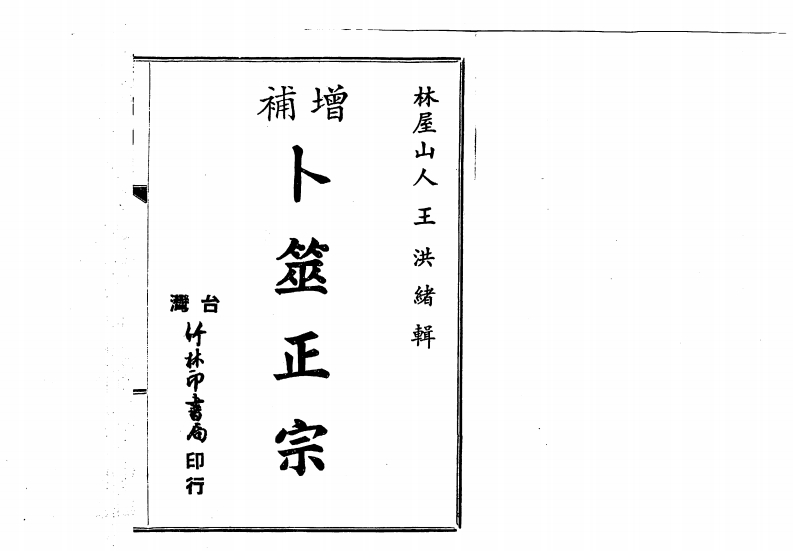 林屋山人王洪緒輯
增補
卜筮正宗
台灣
竹林印書局印行